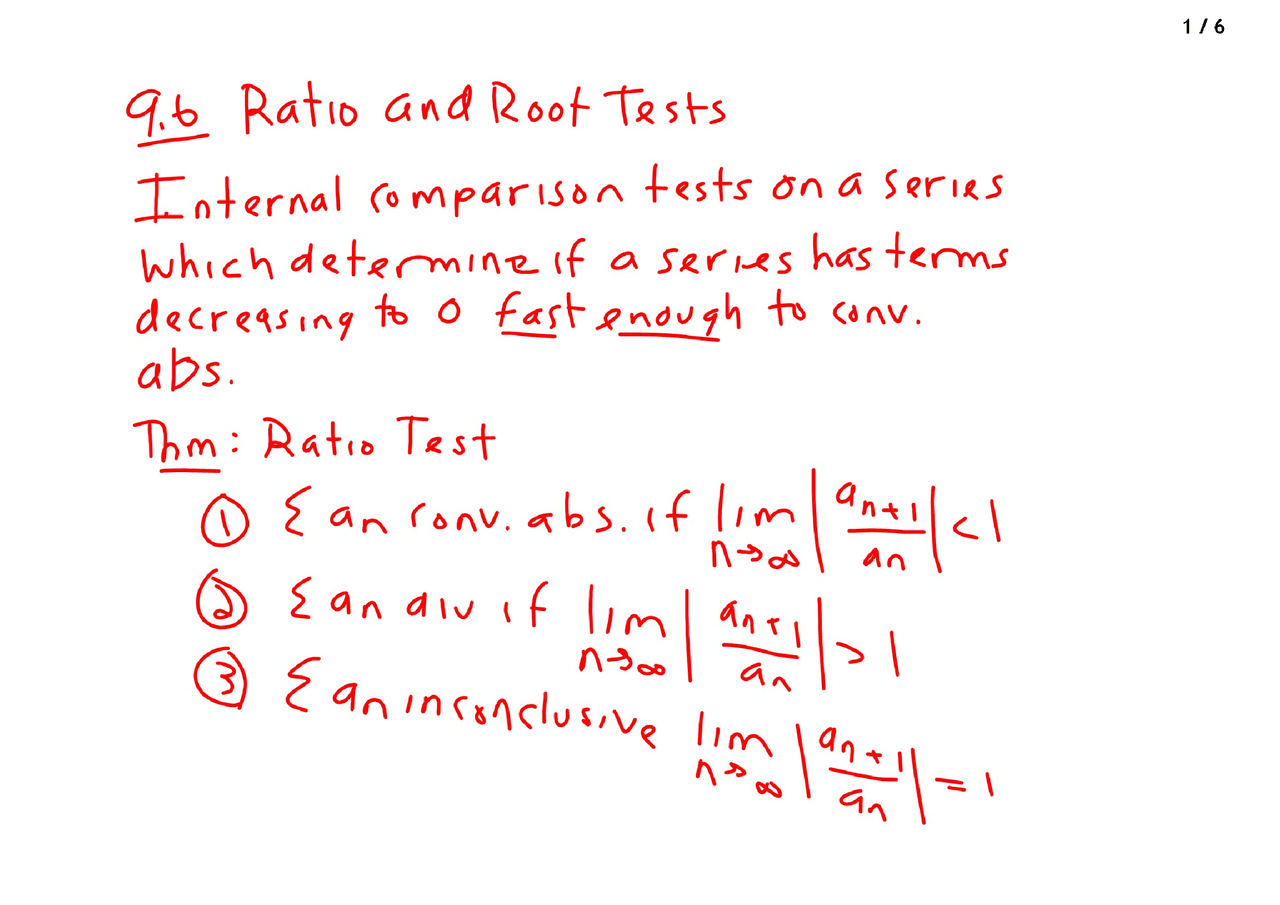 1 / 6
9.6 Ratio and Root Tests
Internal comparison tests on a series
which determine if a series has terms
decreasing to 0 fast enough to conv.
abs.
Thm: Ratio Test
① Σ an conv. abs. if lim n→∞ | an+1 / an | < 1
② Σ an div if lim n→∞ | an+1 / an | > 1
③ Σ an inconclusive lim n→∞ | an+1 / an | = 1